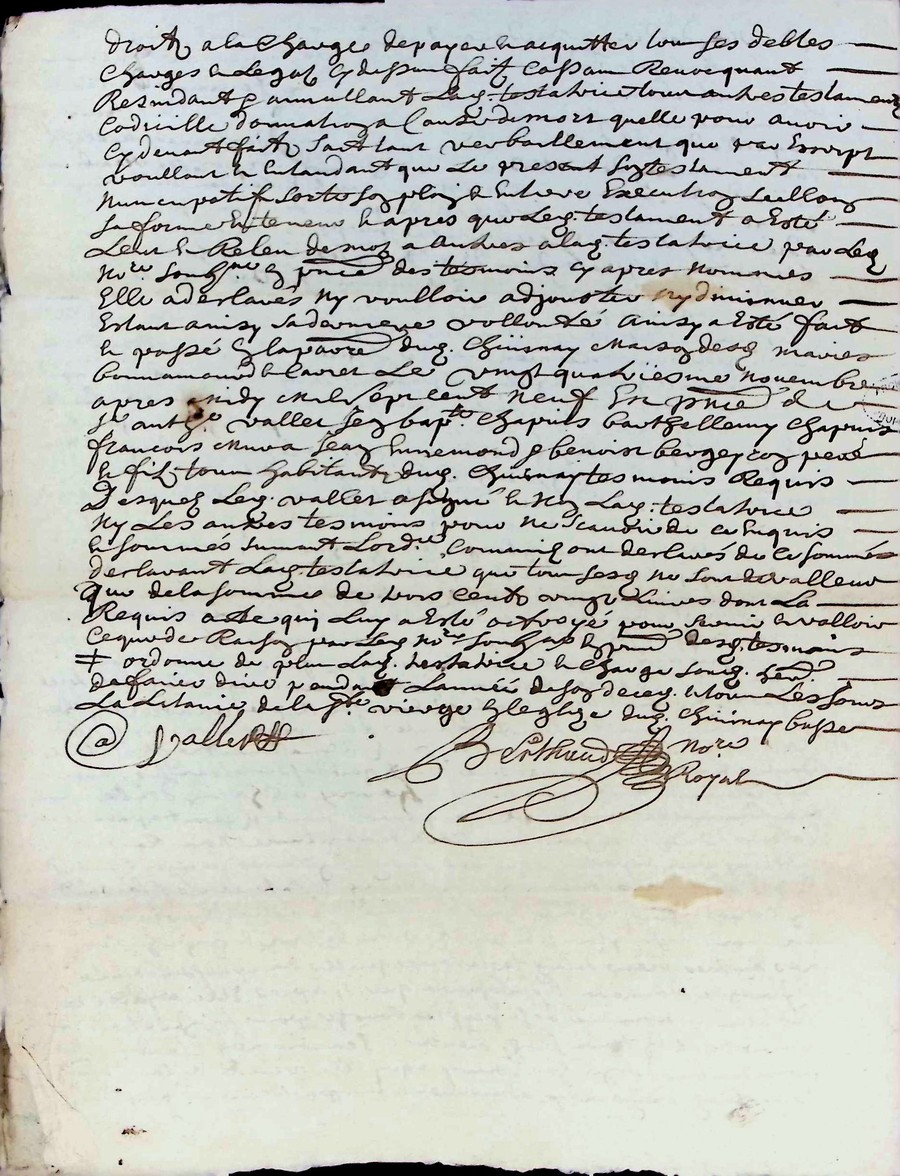 droitz a la Charge de payer & acquitter tous ses debtes
Charges & Legatz cy dessus faitz Cassant Revocquant
Resindant & annullant Lad. testatrice tous autres testaments
Codicille donnation a Cause de mort quelle pour avoir
Cy devant faitz tant verballement que par Escript
voullant & Entandant que Le present son testament
Nuncupatif sorte son plain & Entiere Execution sellon
sa forme & teneur & apres que Led. testament a Esté
Leut & Releu de mot a Autres a lad. testatrice par Led.
Nore. soubzne. En pnce des tesmoins cy apres Nommes
Elle a desclarés Ny voulloir adjouster ny diminuer
Estant ainsy sa derniere vollonté Ainsy a Esté fait
& passé En la parre. dud. Chuisnay Maison desd. maries
bonnamour & lavet Le vingt quatriesme Novembre
apres Midy Mil sept cent Neuf En pnce de
Sr. anthe. vallet Jean bapte. Chapuis barthellemy Chapuis
francois Jean Ennemond & benoist bergeron pere
& filz tous habitantz dud. Chuisnay tesmoins Requis
Desquelz Led. vallet a signé & Non Lad. testatrice
Ny Les autres tesmoins pour ne scavoir de ce Enquis
& sommés suivant Lordce. Comming ont desclarés de Ce sommés
desclarant Lad. testatrice que tous sesd. ne sont de valleur
Que de la somme de trois Centz vingt Livres dont La
Requis acte qui Luy a Esté octroyé pour servir & valloir
Ce que de Raison par Led. Nore. soubzne & pnce desd. tesmoins
‡ ordonne de plus Lad. testatrice & Charge sond. herr.
de faire dire pendant Lannée de son deced. & tous Les Jours
La Litanie de la Ste. vierge En leglize dud. Chuisnay
@ Vallet
Berthaud Nore
Royal